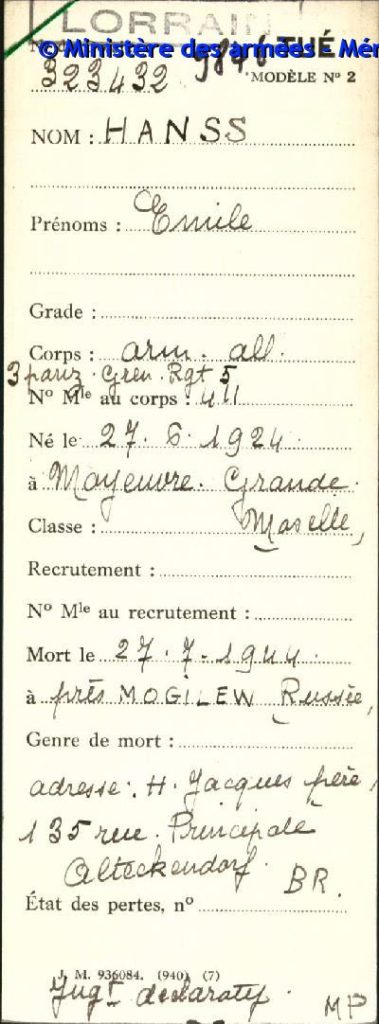 LORRAIN
© Ministère des armées - Mém
TUÉ
323432 9846
MODÈLE Nº 2
NOM : HANSS
Prénoms : Emile
Grade :
Corps : arm. all.
3 panz. Gren. Rgt 5
Nº Mle au corps : 411
Né le 27. 6. 1924.
à Moyeuvre. Grande.
Classe : Moselle,
Recrutement :
Nº Mle au recrutement :
Mort le 27. 7. 1944.
à près MOGILEW Russie,
Genre de mort :
adresse : H. Jacques père,
135 rue. Principale
Alteckendorf. BR.
État des pertes, nº
J. M. 936084. (940) (7)
Jugt déclaratif.
MP